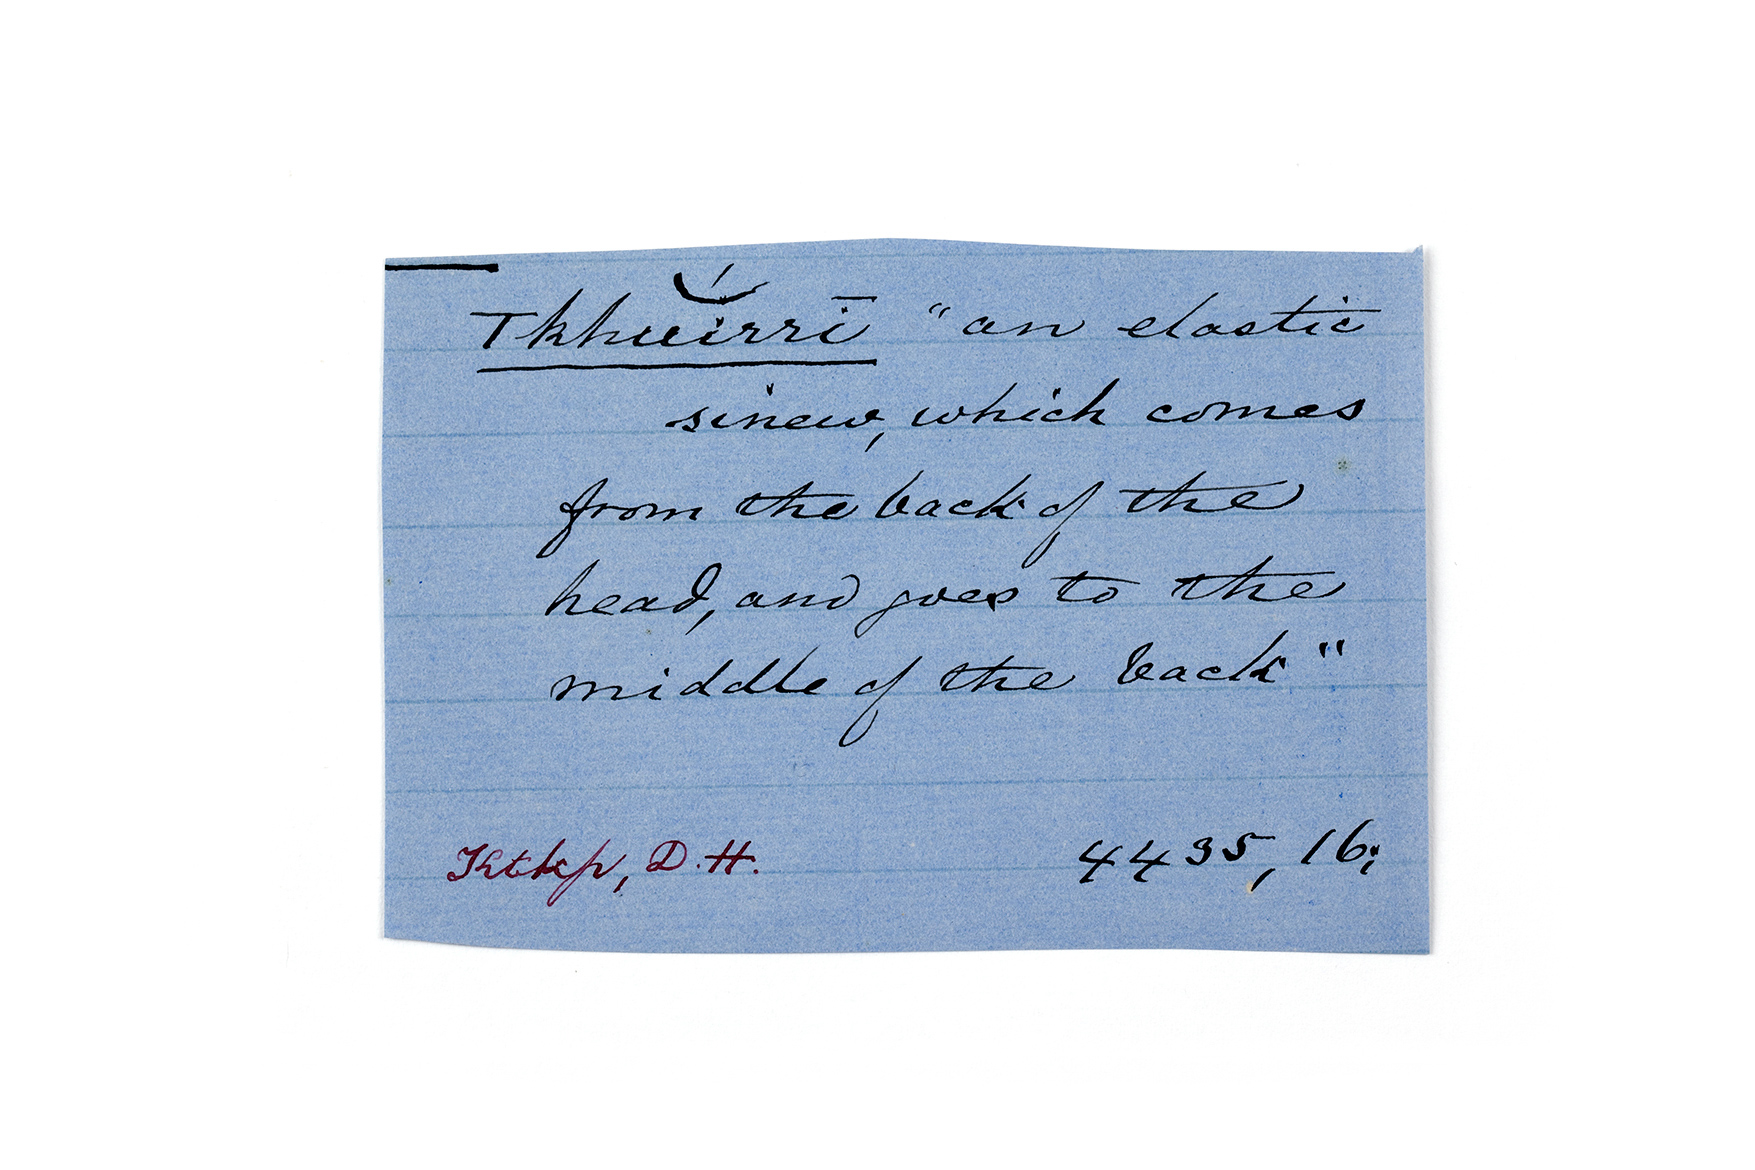 Tkhu͝írrī "an elastic
sinew, which comes
from the back of the
head, and goes to the
middle of the back"
Ktkkp, D.H. 4435, 16;